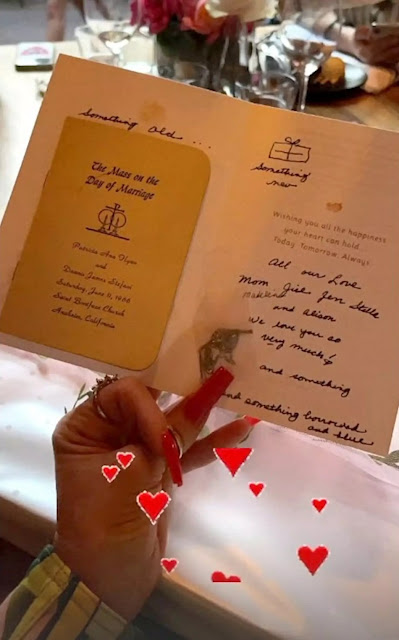 Something old ...
The Mass on the
Day of Marriage
Patricia Ann Flynn
and
Dennis James Stefani
Saturday, June 11, 1966
Saint Boniface Church
Anaheim, California
Something
new
Wishing you all the happiness
your heart can hold.
Today. Tomorrow. Always.
All our Love
Mom, Jen, Stella
and Alison
We love you so
very much!
and something
and something borrowed
and blue